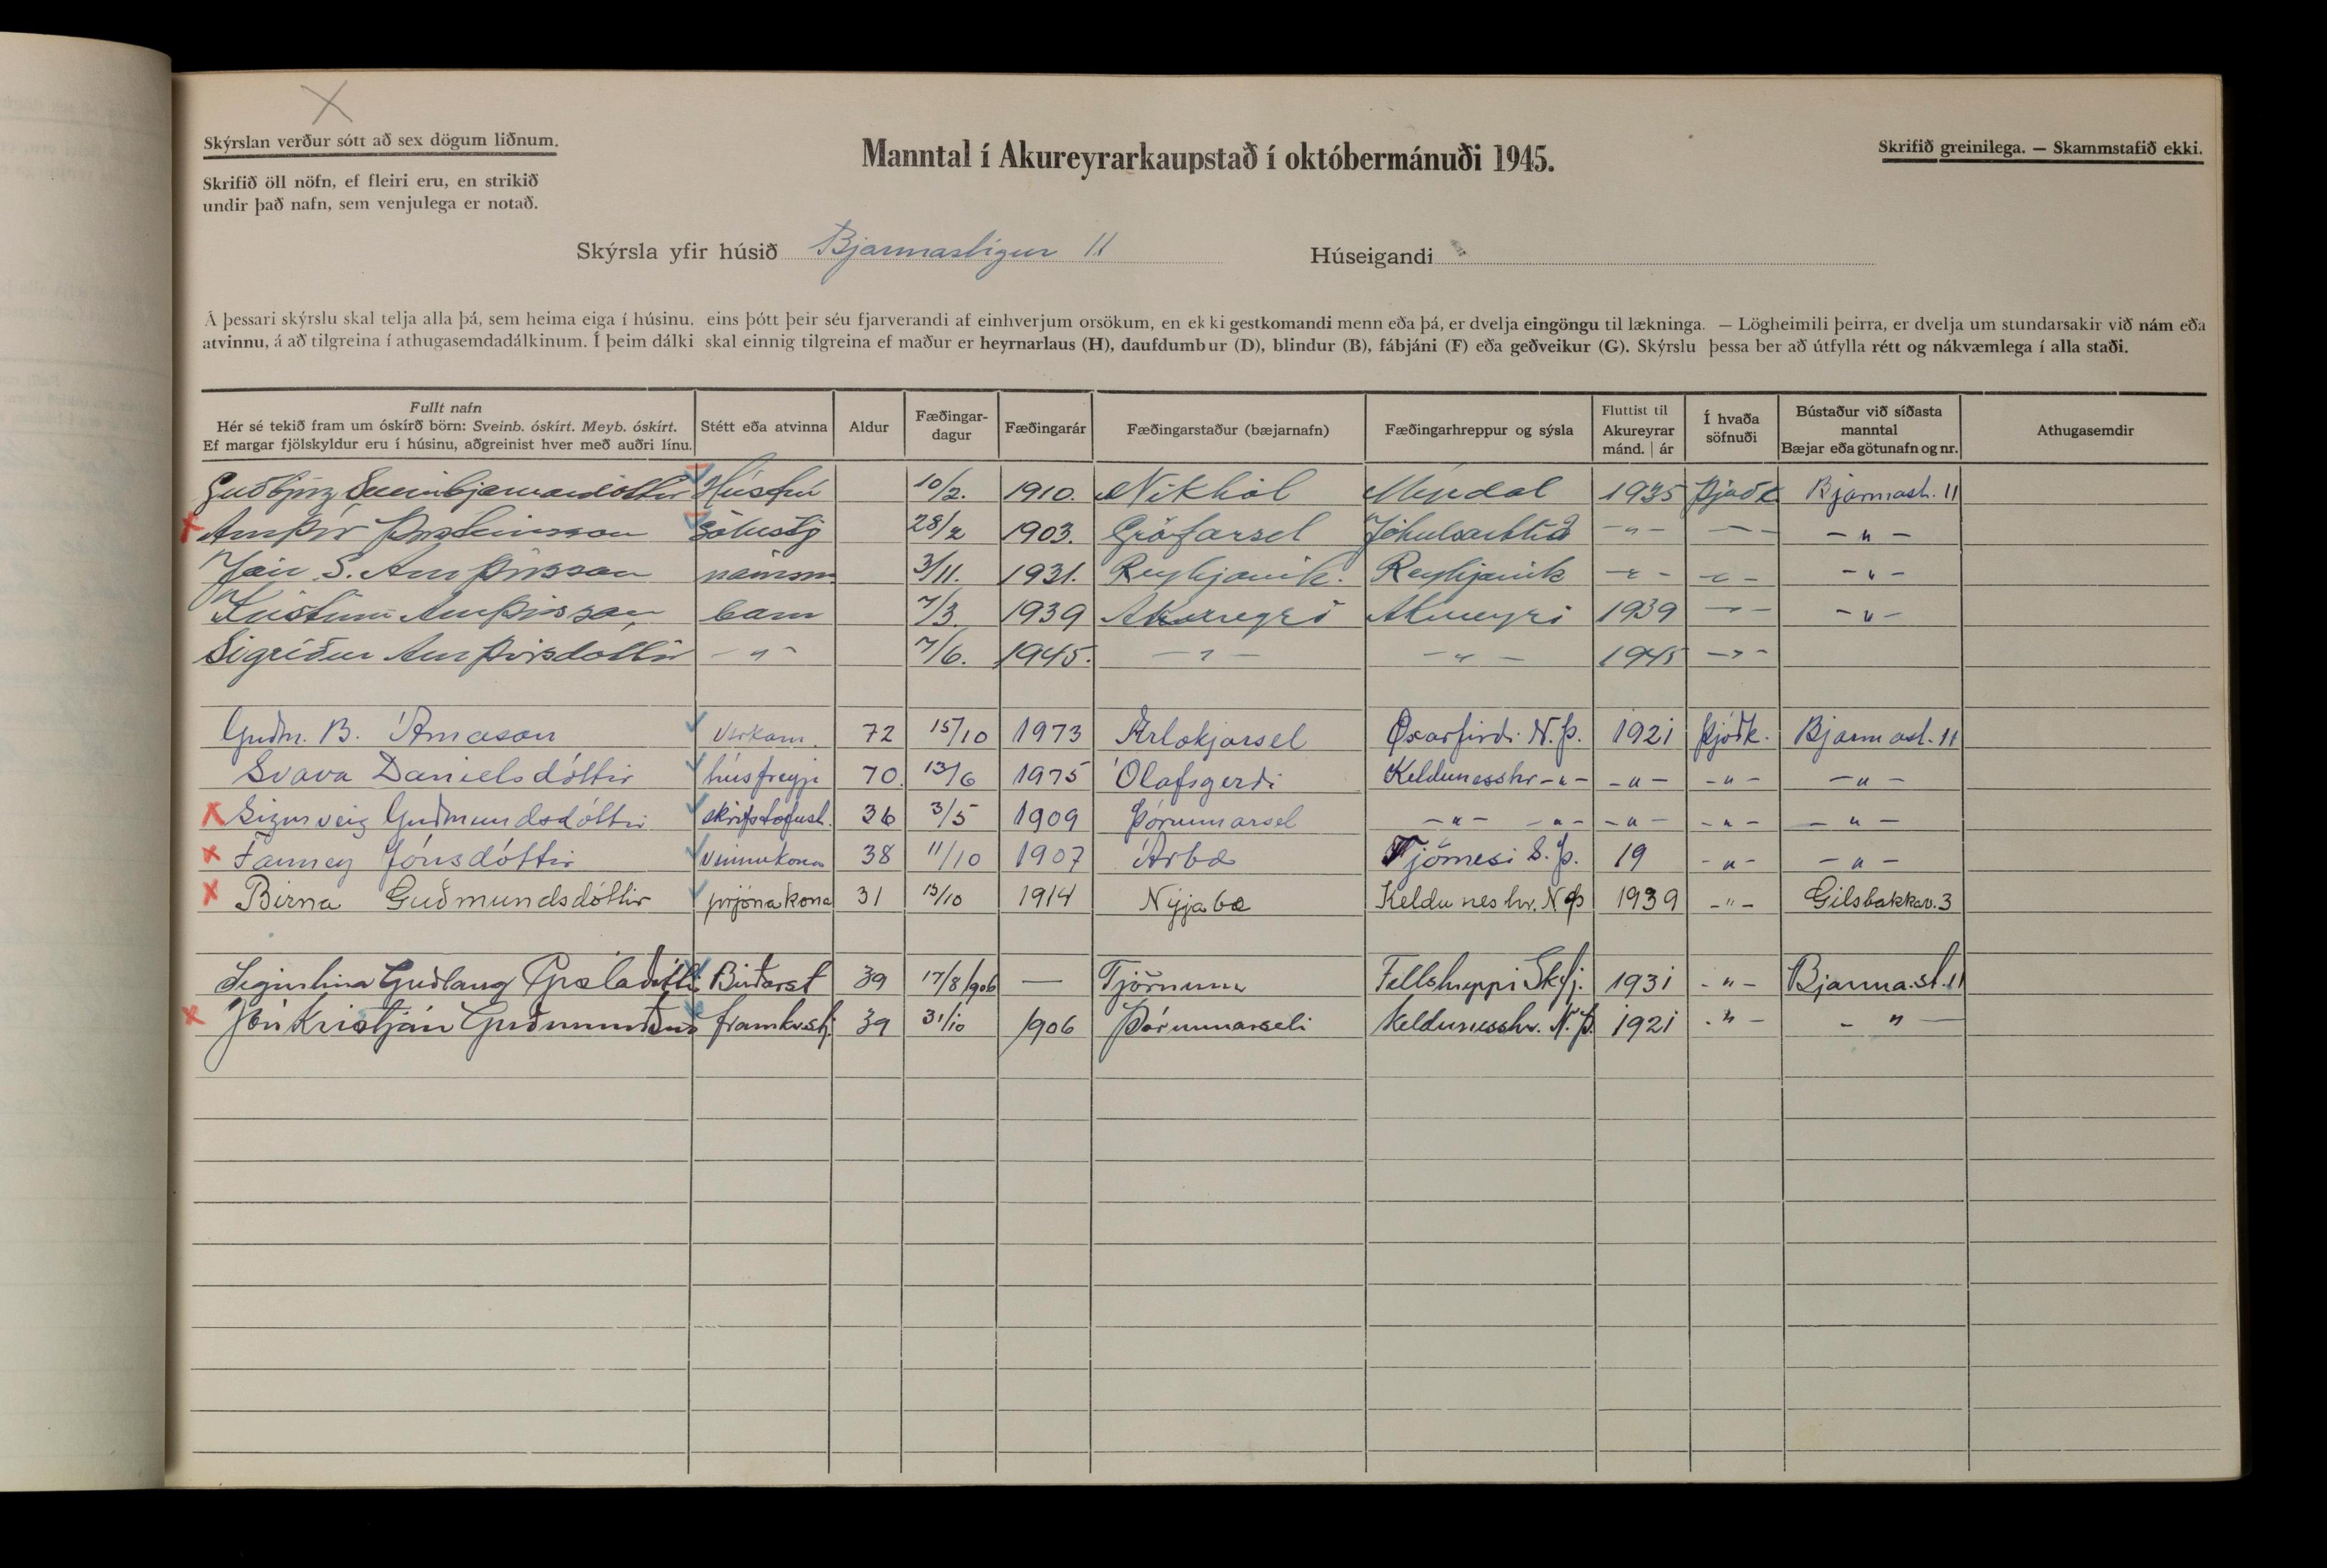 Skýrslan verður sótt að sex dögum liðnum.
Skrifið öll nöfn, ef fleiri eru, en strikið
undir það nafn, sem venjulega er notað.
Manntal í Akureyrarkaupstað í októbermánuði 1945.
Skrifið greinilega. — Skammstafið ekki.
Skýrsla yfir húsið Bjarmastígur 11 Húseigandi
Á þessari skýrslu skal telja alla þá, sem heima eiga í húsinu, eins þótt þeir séu fjarverandi af einhverjum orsökum, en ekki gestkomandi menn eða þá, er dvelja eingöngu til lækninga. — Lögheimili þeirra, er dvelja um stundarsakir við nám eða
atvinnu, á að tilgreina í athugasemdadálkinum. Í þeim dálki skal einnig tilgreina ef maður er heyrnarlaus (H), daufdumbur (D), blindur (B), fábjáni (F) eða geðveikur (G). Skýrslu þessa ber að útfylla rétt og nákvæmlega í alla staði.
Fullt nafn
Hér sé tekið fram um óskírð börn: Sveinb. óskírt. Meyb. óskírt.
Ef margar fjölskyldur eru í húsinu, aðgreinist hver með auðri línu.
Stétt eða atvinna
Aldur
Fæðingar-
dagur
Fæðingarár
Fæðingarstaður (bæjarnafn)
Fæðingarhreppur og sýsla
Fluttist til
Akureyrar
mánd. | ár
Í hvaða
söfnuði
Bústaður við síðasta
manntal
Bæjar eða götunafn og nr.
Athugasemdir
Guðbjörg Sveinbjarnardóttir Húsfrú 10/2. 1910. Nikhól Mýrdal 1935 Þjóðk Bjarmast. 11
Arnþór Þorsteinsson 28/2 1903. Gröfarsel -"- -"-
Jón S. Arnþórsson námsm 3/11. 1931. Reykjavik. Reykjavik -"- -"- -"-
Kristinn Arnþórsson barn 7/3. 1939 Akureyri Akureyri 1939 -"- -"-
Sigríður Arnþórsdóttir -"- 7/6. 1945. -"- -"- 1945 -"-
Guðm. B. Árnason Verkam. 72 15/10 1973 Öxarfirði N.Þ. 1921 Þjóðk. Bjarmast. 11
Svava Daníelsdóttir húsfreyja 70. 13/6 1975 Ólafsgerði Keldunesshr -"- -"- -"- -"-
Sigurveig Guðmundsdóttir skrifstofust. 36 3/5 1909 Þórunnarsel -"- -"- -"- -"- -"-
Fanney Jónsdóttir vinnukona 38 11/10 1907 Árbæ Tjörnesi S.Þ. 19 -"- -"-
Birna Guðmundsdóttir prjónakona 31 13/10 1914 Nýjabæ Kelduneshr. N Þ 1939 -"- Gilsbakkav. 3
Sigurlína Guðlaug 39 17/8 1906 — Tjörnum Fellshreppi Skfj. 1931 -"- Bjarma.st. 11
Jón Kristján Guðmundsson framkvstj. 39 31/10 1906 Þórunnarseli Keldunesshr. N.Þ. 1921 -"- -"-